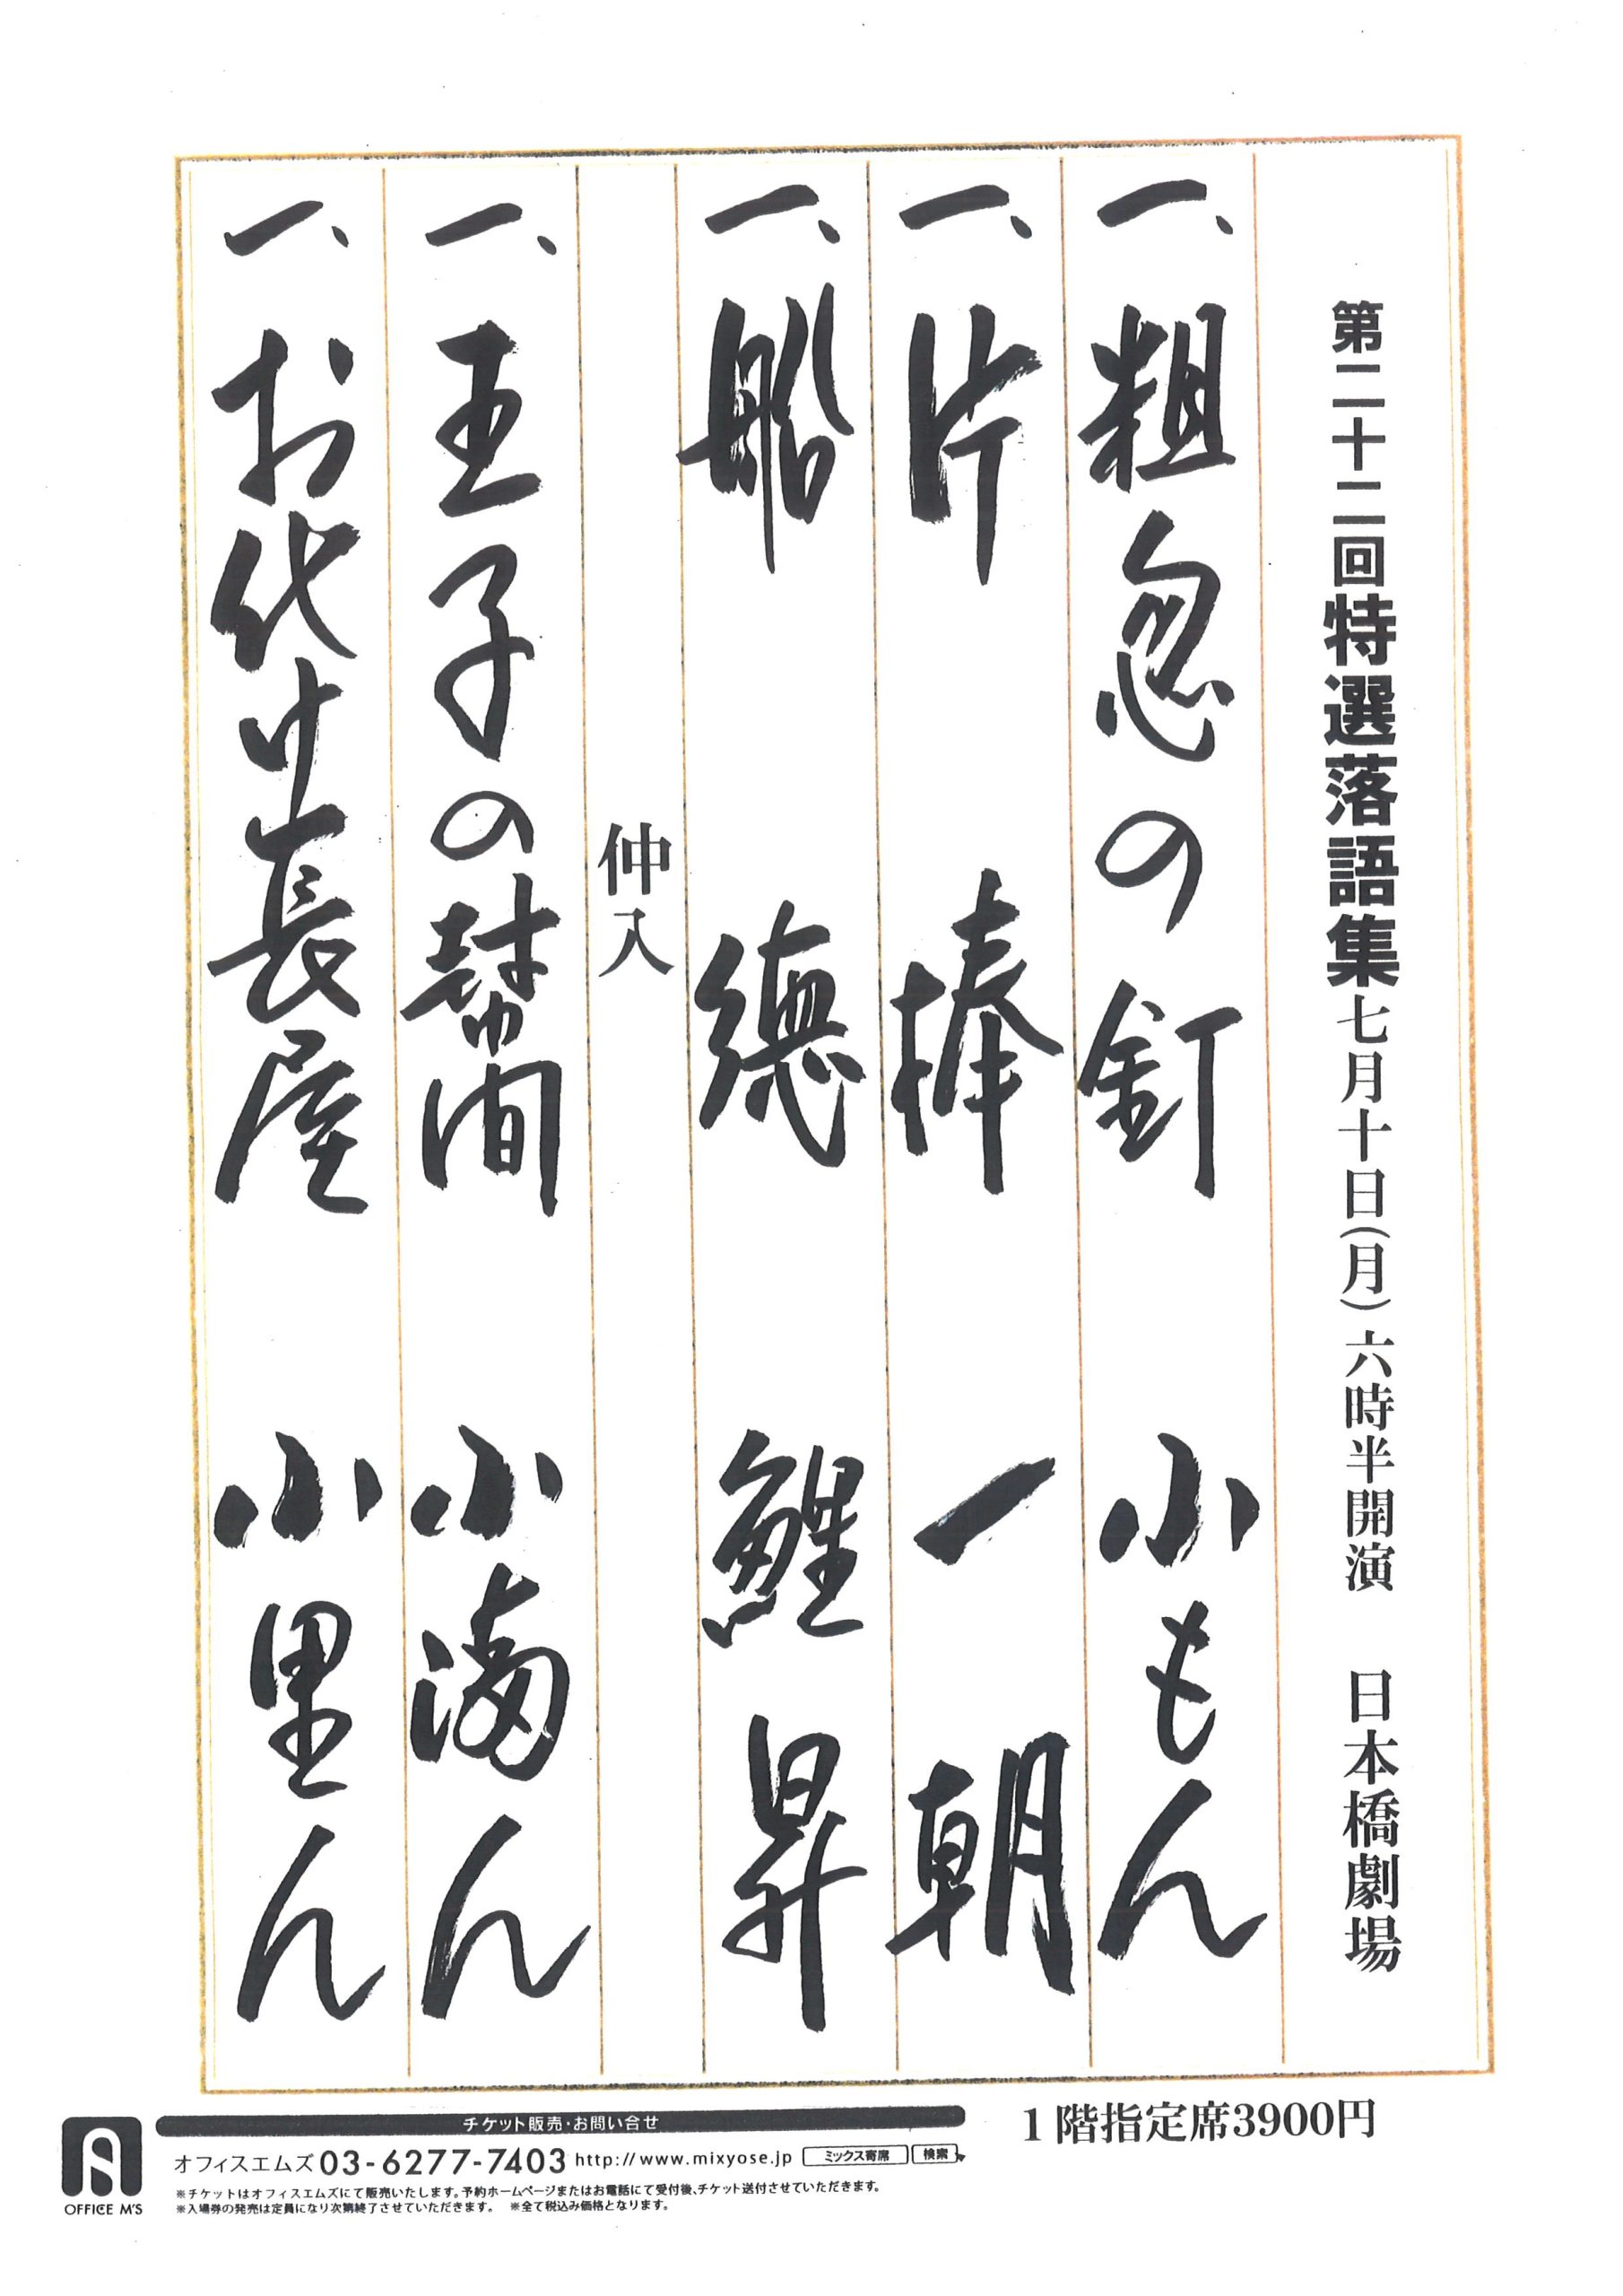 第二十二回特選落語集七月十日(月)六時半開演 日本橋劇場
一、粗忽の釘 小もん
一、片棒 一朝
一、船徳 鯉昇
仲入
一、王子の幇間 小満ん
一、お化け長屋 小里ん
1階指定席3900円
チケット販売・お問い合せ
オフィスエムズ03-6277-7403 http://www.mixyose.jp ミックス寄席 検索
※チケットはオフィスエムズにて販売いたします。予約ホームページまたはお電話にて受付後、チケット送付させていただきます。
※入場券の発売は定員になり次第終了させていただきます。 ※全て税込み価格となります。
OFFICE M'S